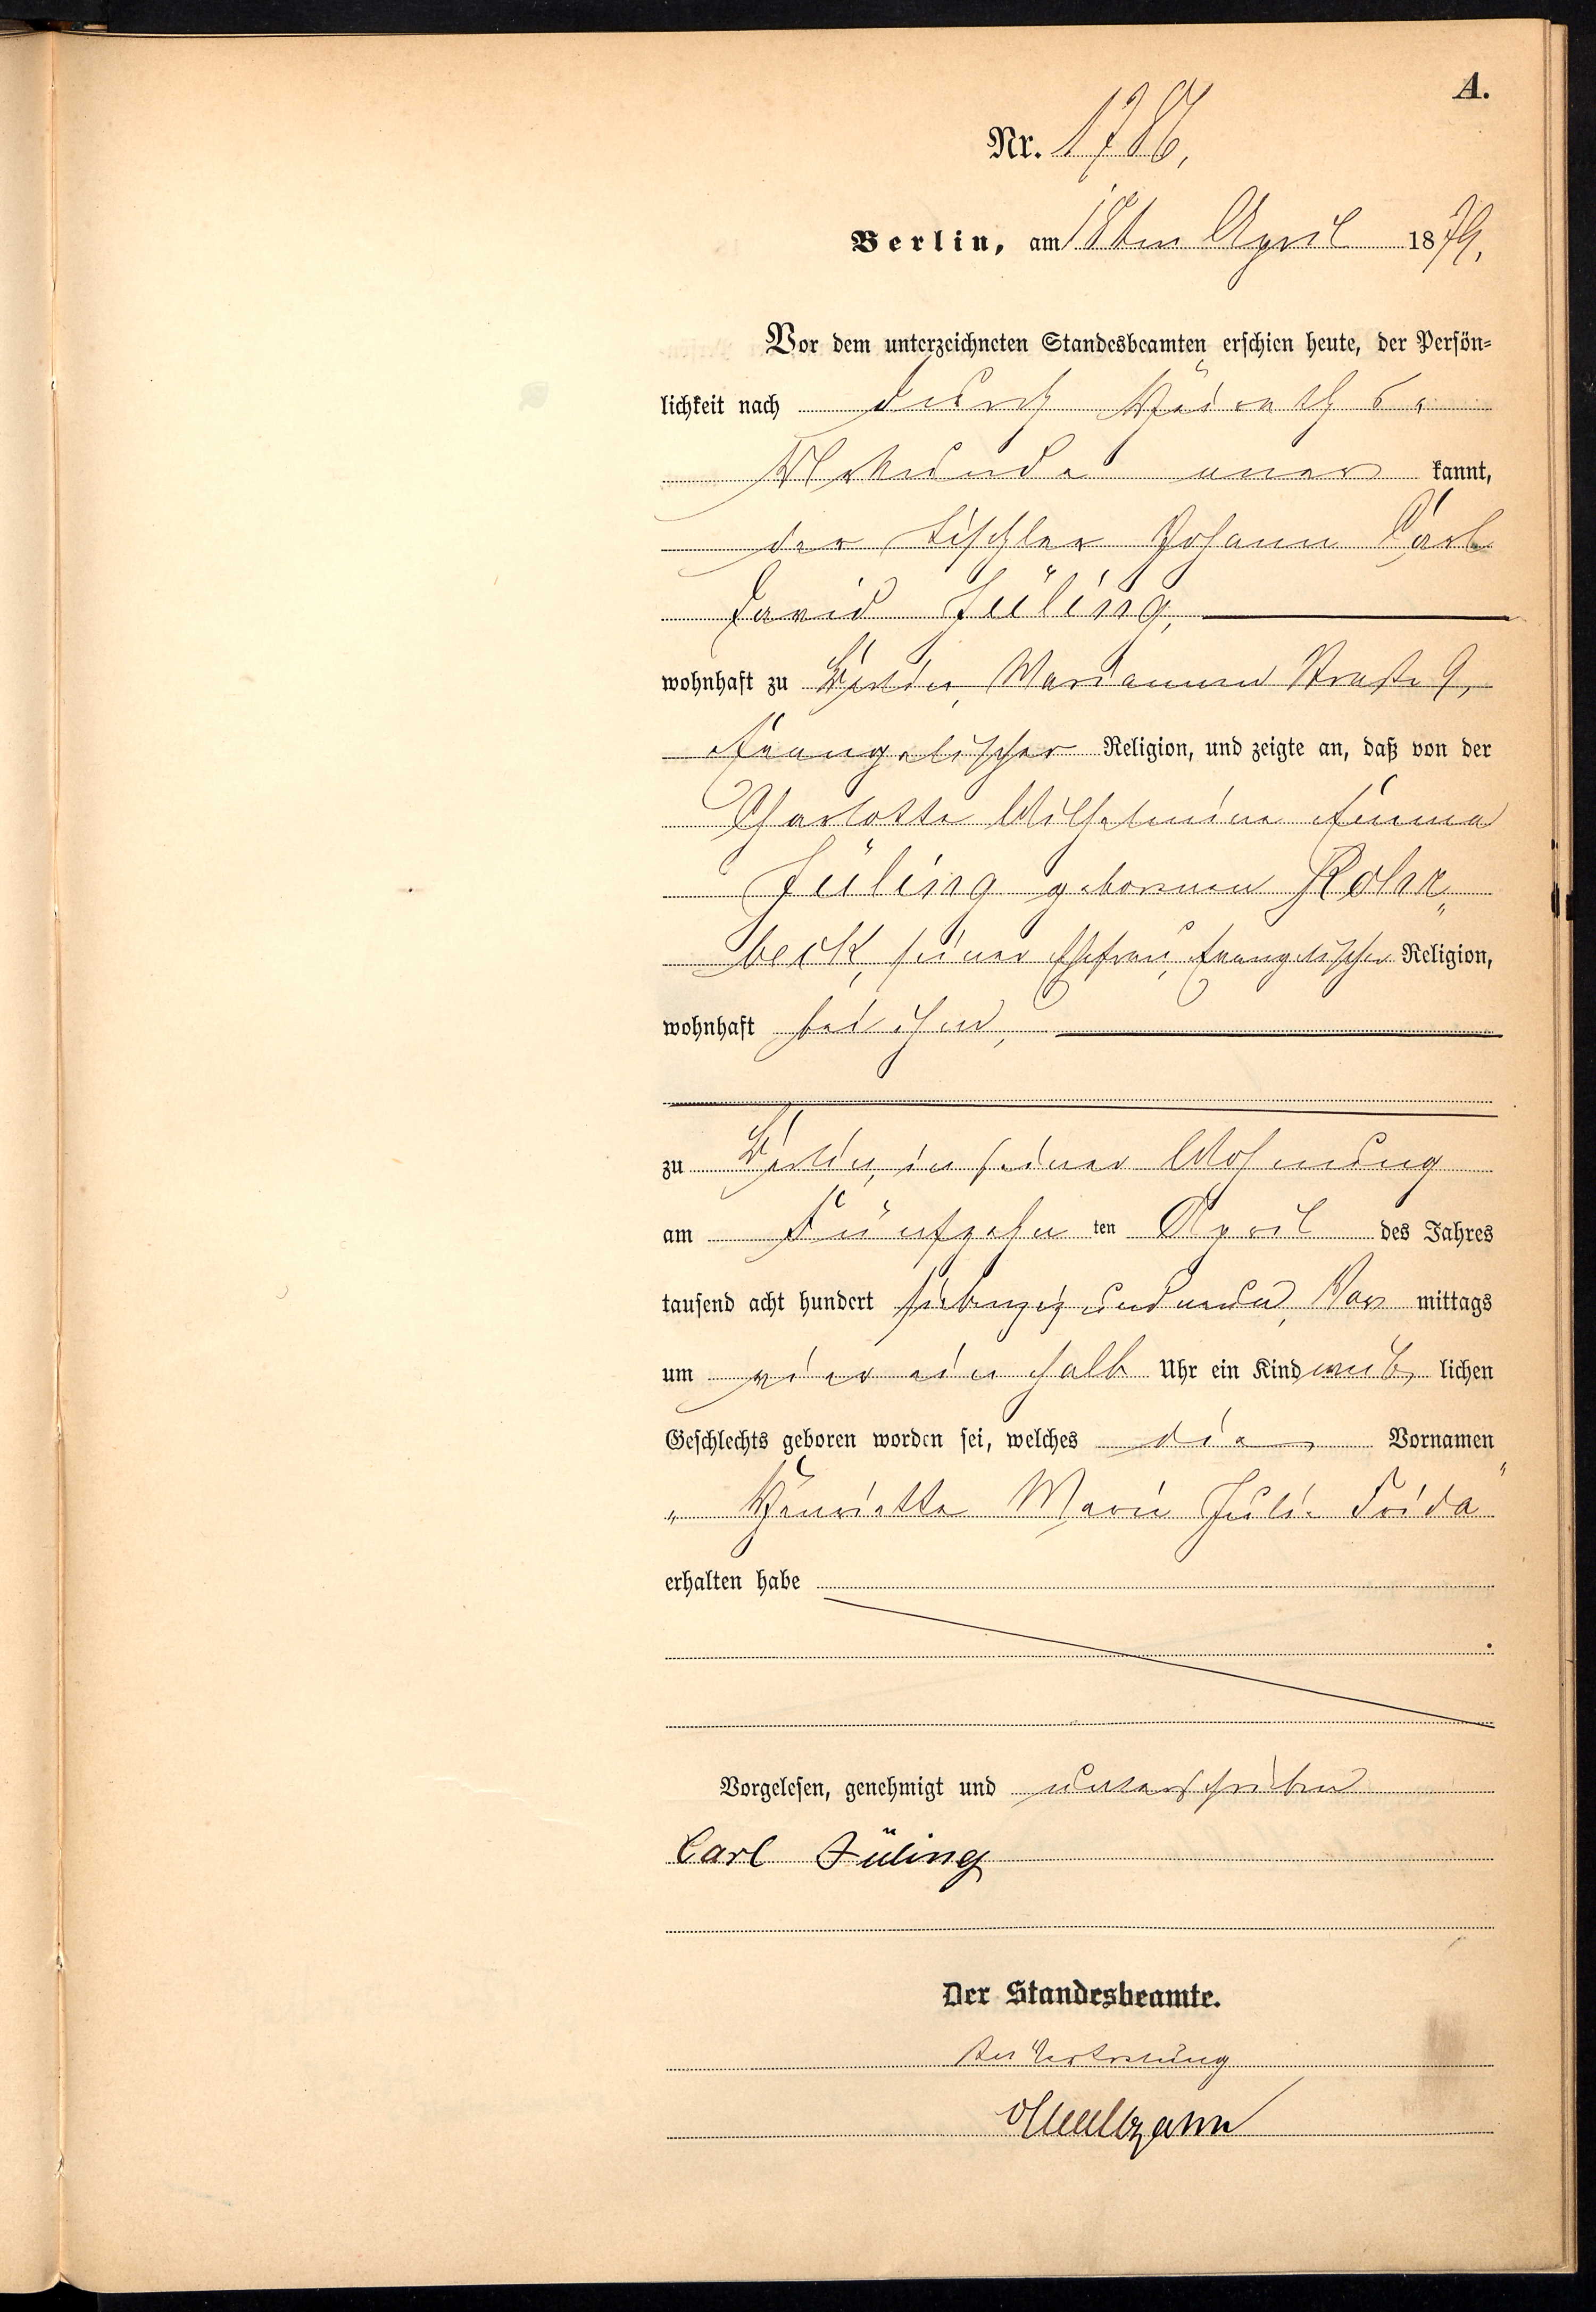 A.
Nr. 1786,
Berlin, am 18ten April 1879,
Vor dem unterzeichneten Standesbeamten erschien heute, der Persön-
lichkeit nach durch Heiraths-
Urkunde aner kannt,
der Tischler Johann Carl
David Jüling,
wohnhaft zu Berlin, Mariannen Straße 9,
Evangelischer Religion, und zeigte an, daß von der
Charlotte Wilhelmine Emma
Jüling geborenen Rohr-
beck, seiner Ehefrau, Evangelischer Religion,
wohnhaft bei ihm,
zu Berlin, in seiner Wohnung
am Fünfzehn ten April des Jahres
tausend acht hundert siebenzig und neun, Vor mittags
um vier ein halb Uhr ein Kind weib lichen
Geschlechts geboren worden sei, welches die Vornamen
„Henriette Marie Julie Frida"
erhalten habe
.
Vorgelesen, genehmigt und unterschrieben
Carl Jüling
Der Standesbeamte.
In Vertretung